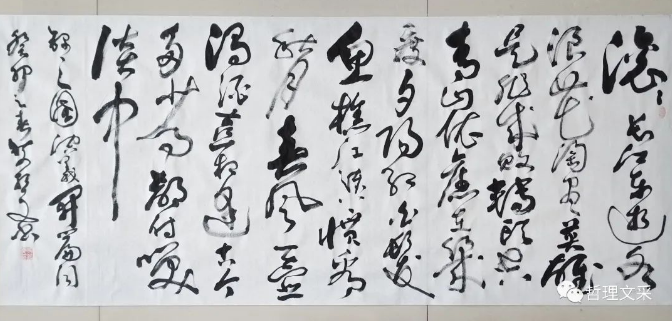 滚〻长江东逝水
浪花淘尽英雄
是非成败转头空
青山依旧在几
度夕阳红白发
渔樵江渚惯看
秋月春风一壶
浊酒喜相逢古今
多少事都付笑
谈中
三国演义开篇词
癸卯之春
哲理文采